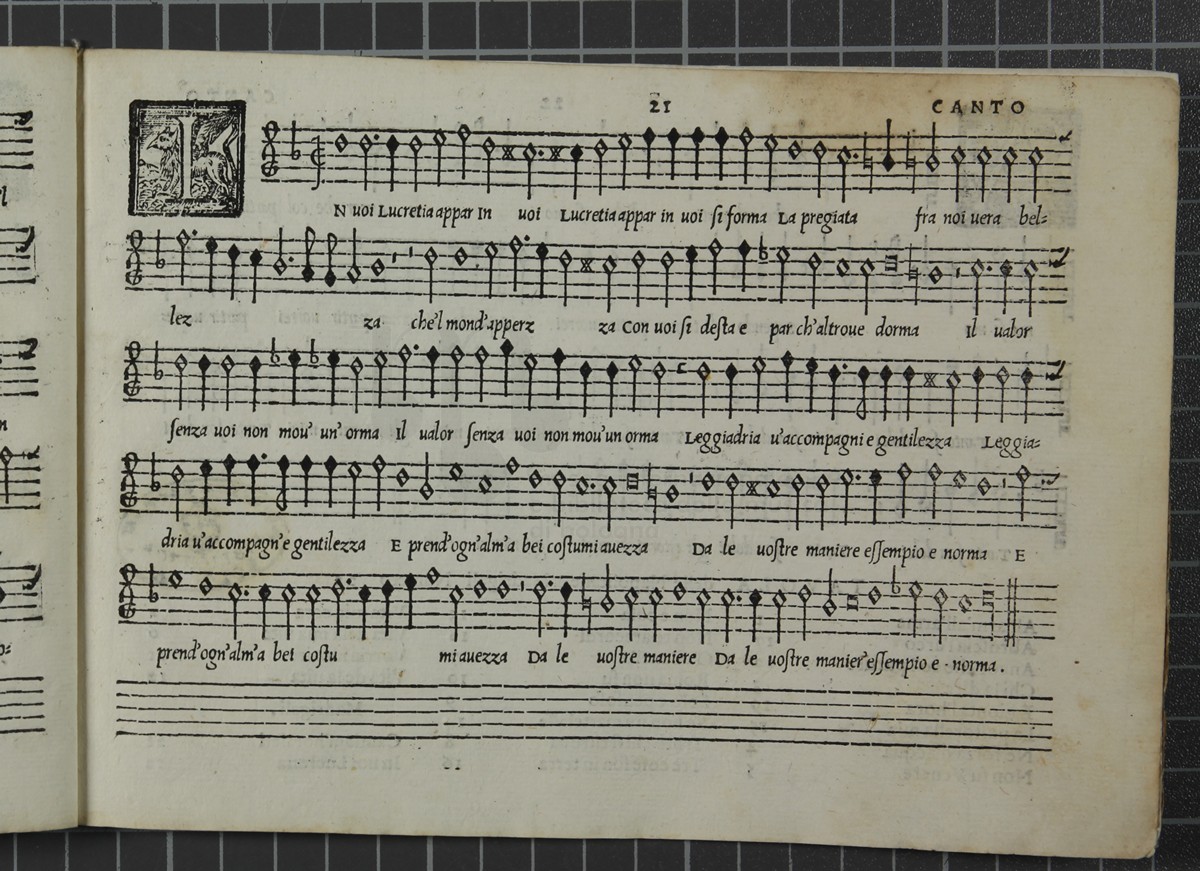 21 CANTO
IN uoi Lucretia appar In uoi Lucretia appar in uoi si forma La pregiata fra noi uera bel=
lez za che'l mond'apperz za Con uoi si desta e par ch'altroue dorma Il ualor
senza uoi non mou' un' orma Il ualor senza uoi non mou'un orma Leggiadria u'accompagni e gentilezza Leggia=
dria u'accompagn'e gentilezza E prend'ogn'alm'a bei costumi auezza Da le uostre maniere essempio e norma E
prend'ogn'alm'a bei costu mi auezza Da le uostre maniere Da le uostre manier'essempio e norma.